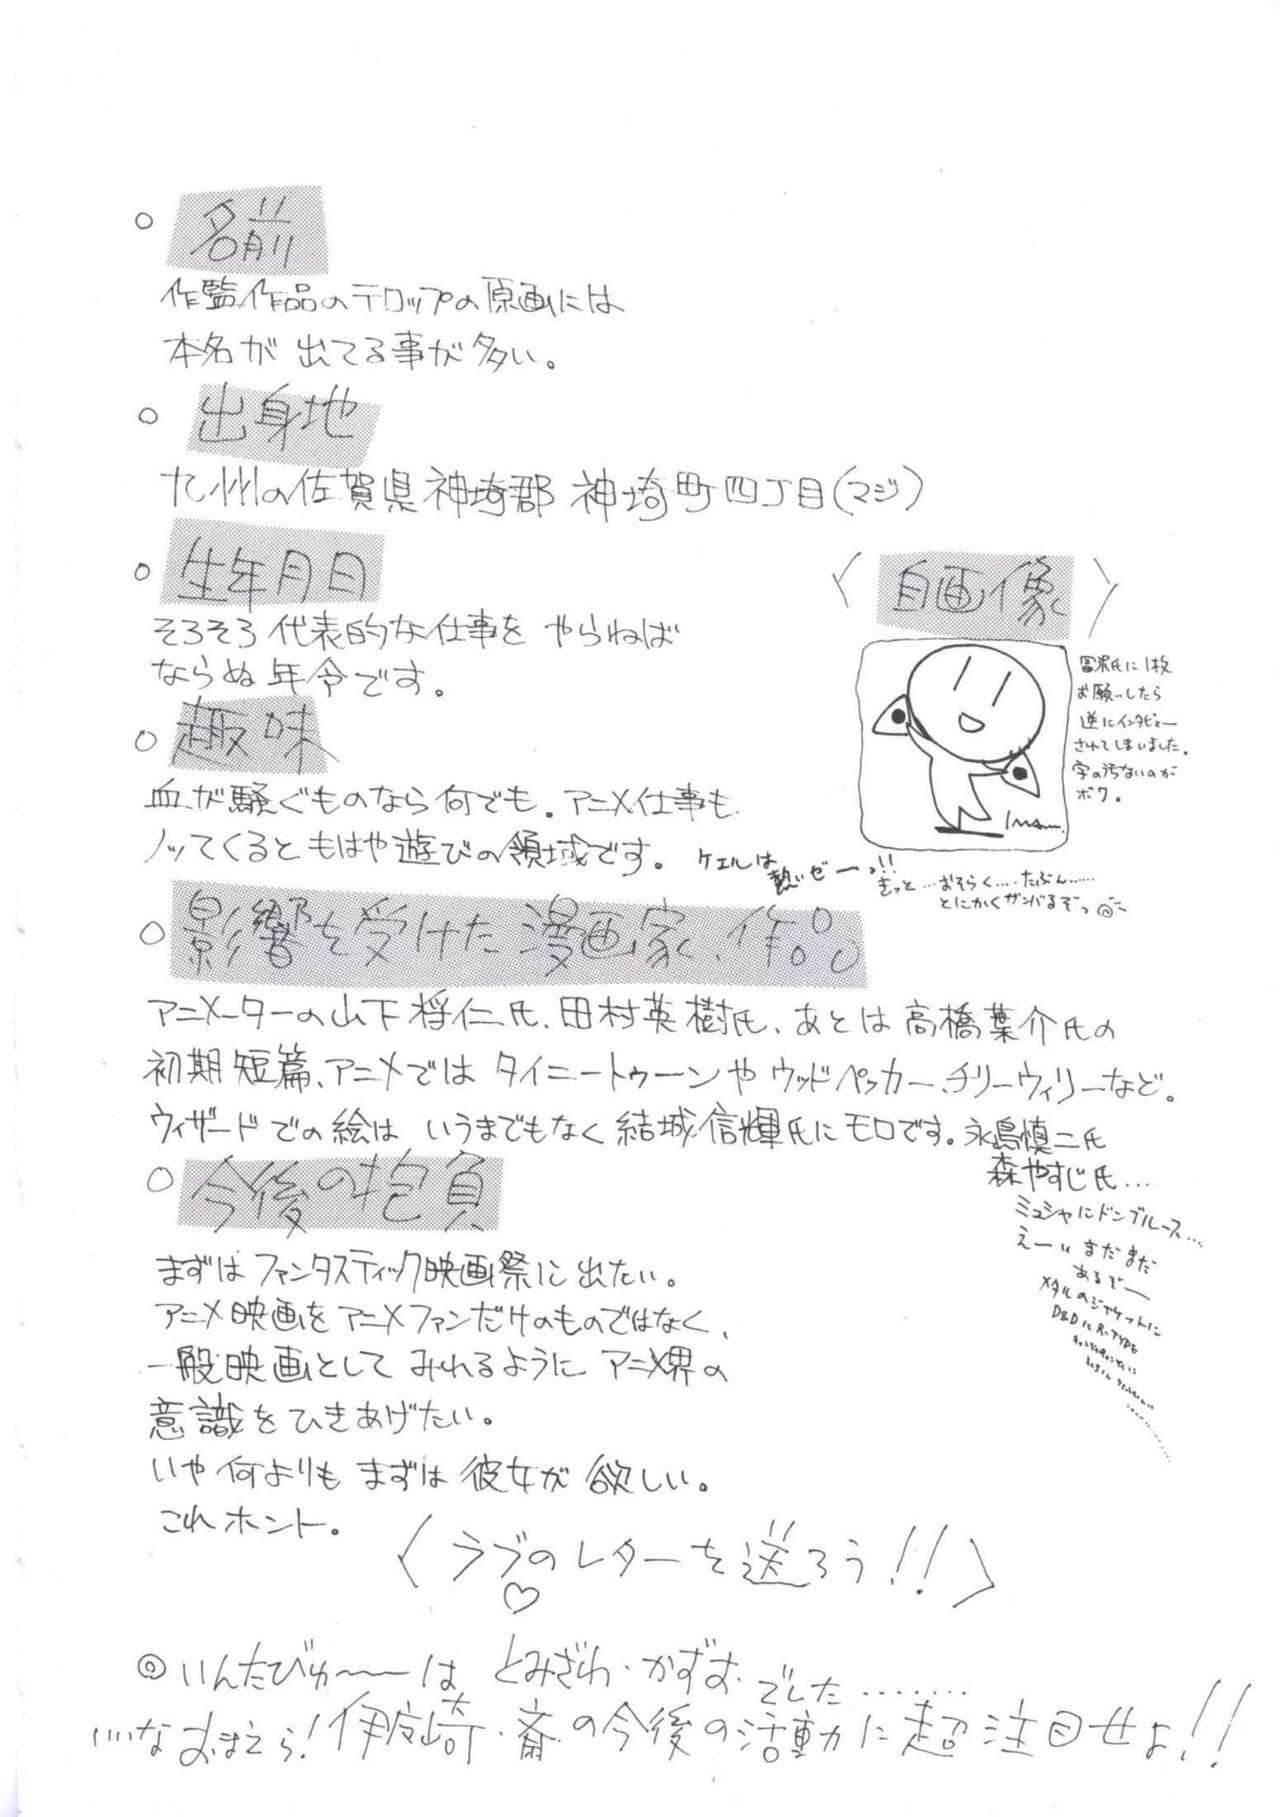 ○ 名前
作監作品のテロップの原画には
本名が出てる事が多い。
○ 出身地
九州の佐賀県神埼郡神埼町四丁目(マジ)
○ 生年月日
そろそろ代表的な仕事をやらねば
ならぬ年令です。
〈自画像〉
冨沢氏に1枚
お願いしたら
逆にインタビュー
されてしまいました。
字の汚ないのが
ボク。
○ 趣味
血が騒ぐものなら何でも。アニメ仕事も
ノッてくるともはや遊びの領域です。
ケエルは
熱いゼーっ!!
きっと…おそらく….たぶん……
とにかくガンバるぞっ
○ 影響を受けた漫画家、作品
アニメーターの山下将仁氏、田村英樹氏、あとは高橋葉介氏の
初期短篇、アニメではタイニートゥーンやウッドペッカー、チリーウィリーなど。
ウィザードでの絵はいうまでもなく結城信輝氏にモロです。永島慎二氏
森やすじ氏…
ミュシャにドンブルース…
えーいまだまだ
あるぞー
メタルのジャケットに
D&DにR-TYPE
○ 今後の抱負
まずはファンタスティック映画祭に出たい。
アニメ映画をアニメファンだけのものではなく、
一般映画としてみれるようにアニメ界の
意識をひきあげたい。
いや何よりもまずは彼女が欲しい。
これホント。
〈ラブのレターを送ろう!!〉
♡
◎いんたびゅ〜〜は とみざわ・かずお・でした………
…なおまえら!伊皮崎・斎の今後の活動に超注目せよ!!